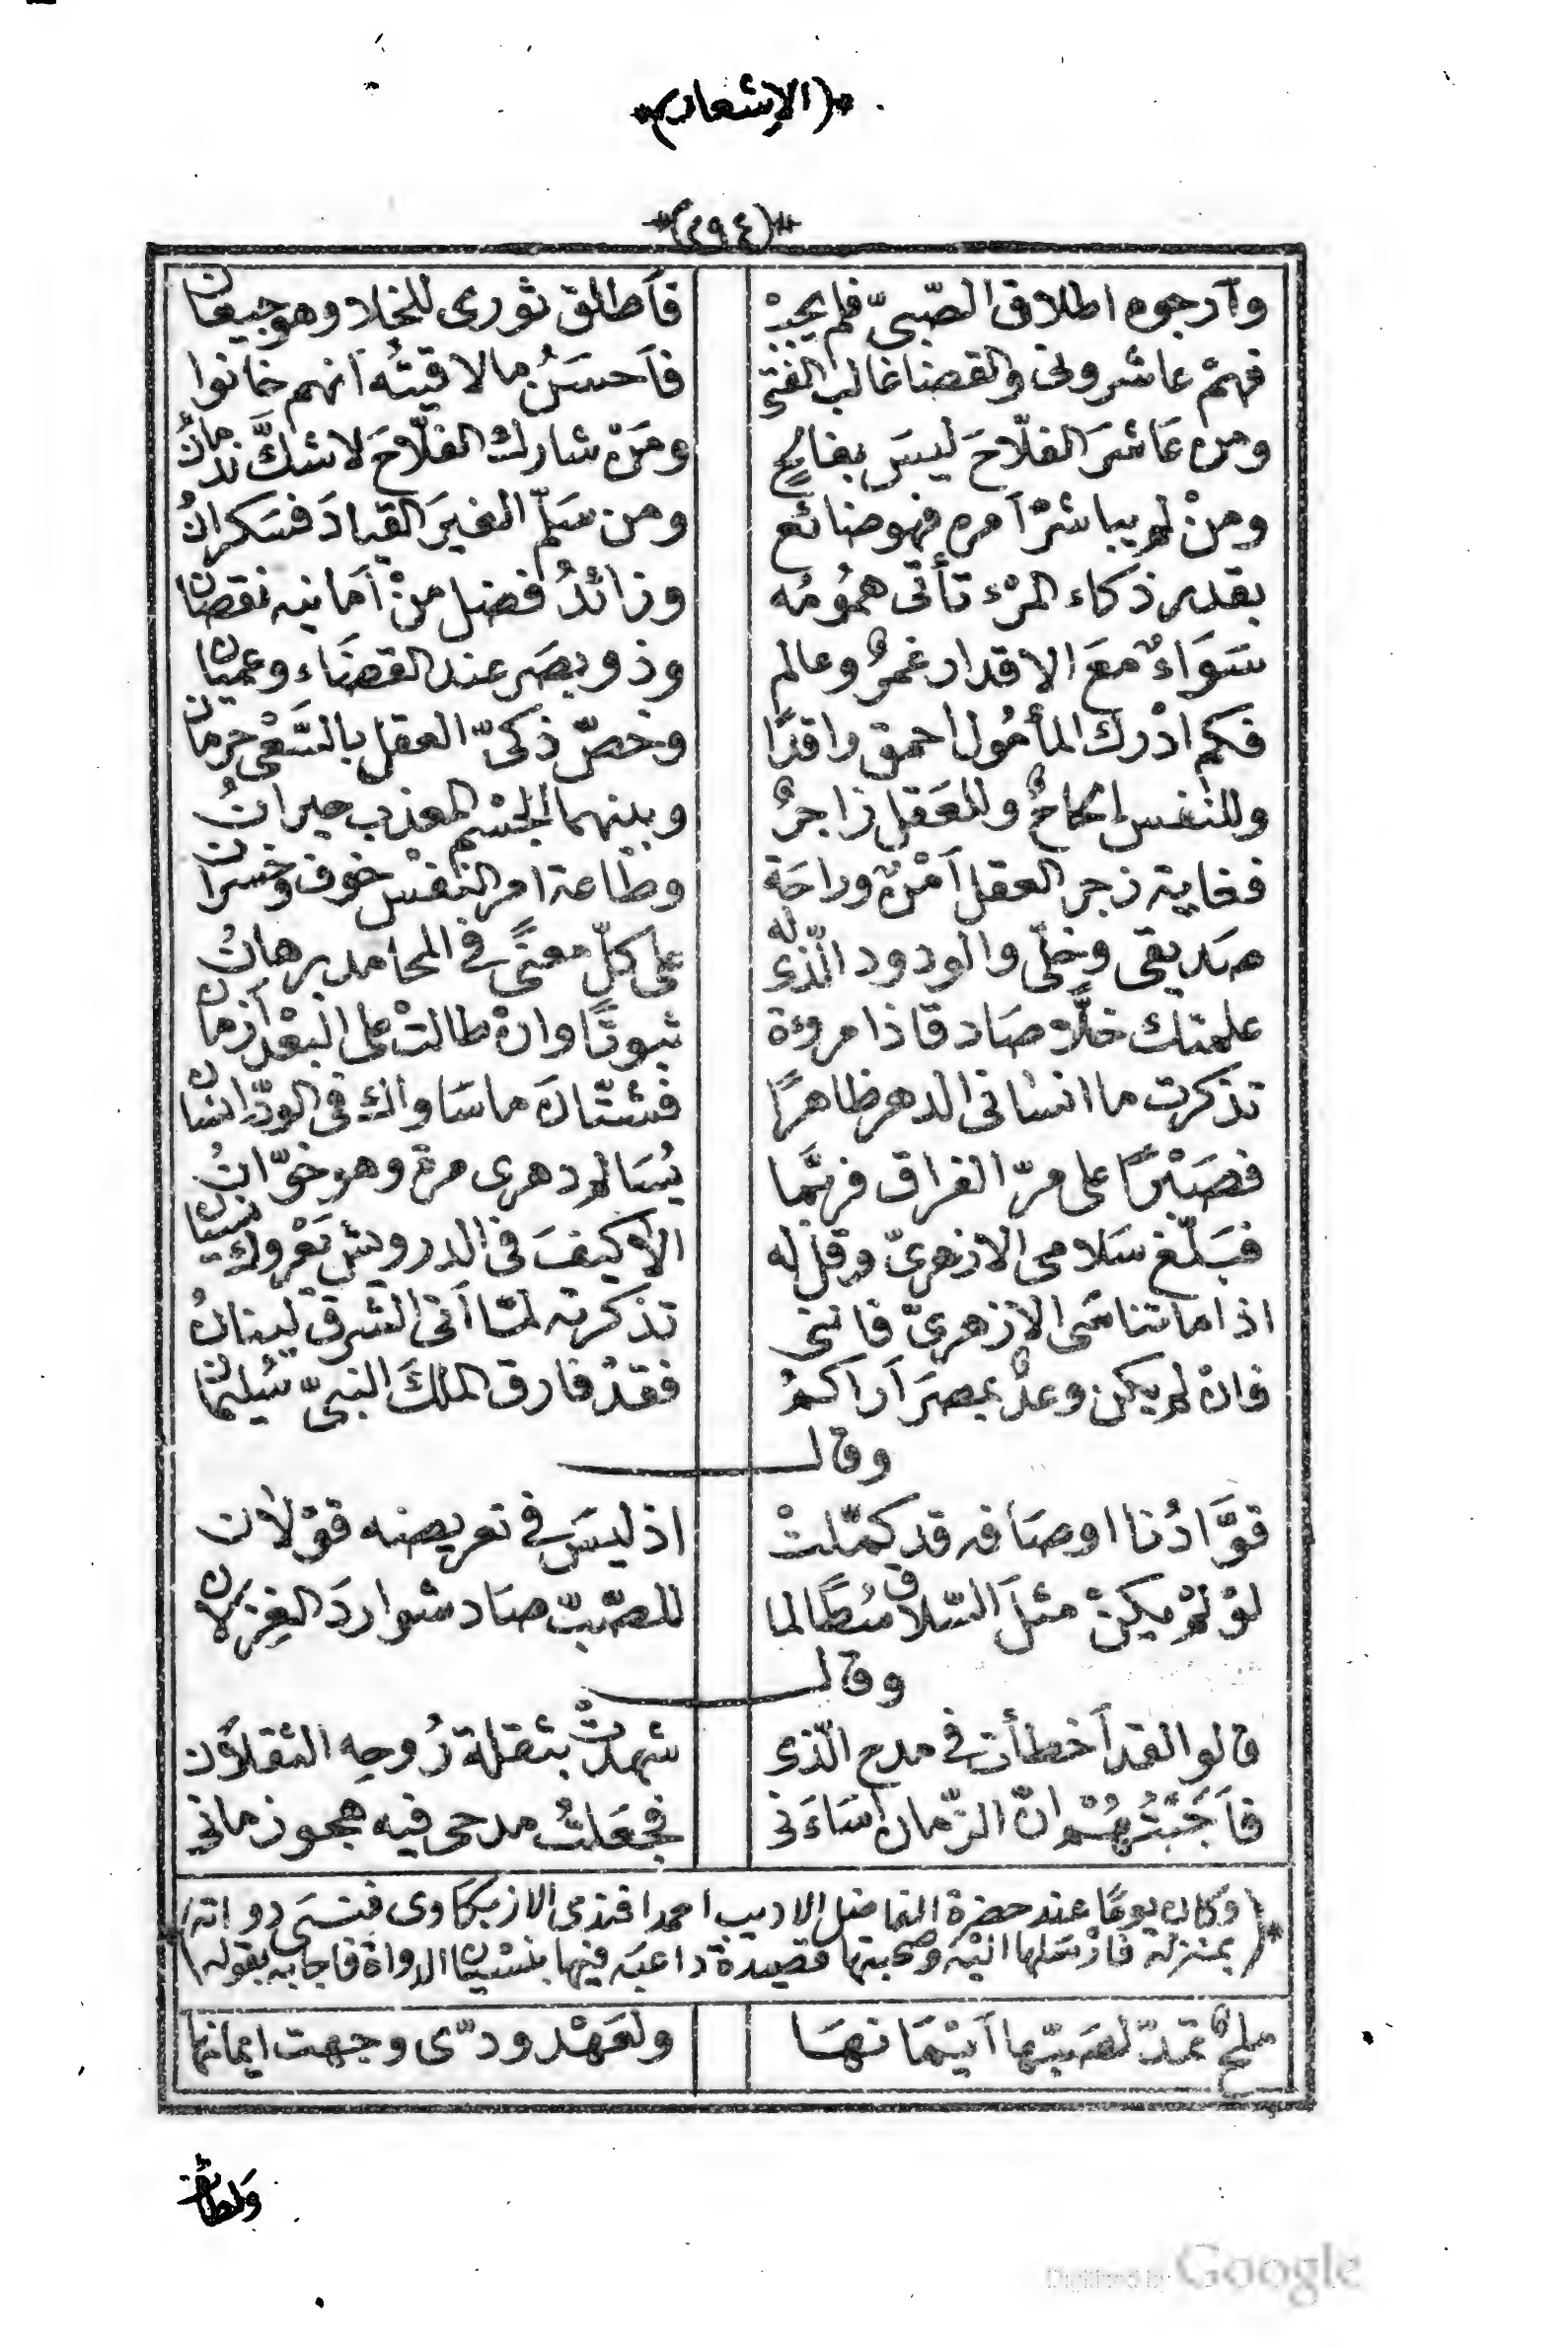 *(الإشعار)*
*(٢٩٤)*
وآرجوه اطلاق الصّبىّ فلم يجبْ فآطلق ثورى للخلا وهو جيعان
فهمْ عاشرونى والقضا غالب الفتى فآحسنُ ما لاقيتُه آنهم خانوا
ومن عَاشرَ الفلّاحَ ليسَ بفالحٍ ومَنْ شارك الفلّاحَ لا شكَّ ندمانُ
ومنْ لم يباشرْ آمره فهو ضائع ومن سَلّم الغيرَ القيادَ فسَكرانُ
بقدر ذكاء المرْء تأتى همُومُه وزائدُ فضل منْ آمانيه نقصان
سَوَاءٌ معَ الاقدار غمرٌ وعالم وذو بصَر عند القضَاء وعميان
فكم ادْرك المأمُول احمق راقدًا وخصّ ذكىّ العقل بالسَّعْى حرمان
وللنفس الحاحٌ وللعَقل زاجرٌ وبينهما الجسْم المعذب حيرانُ
فغاية زجر العقل آمْنٌ وراحَة وطَاعة امر النفْس خوف وخسران
صَديقى وخلّى والودود الّذى له على كلّ معنًى في المحامد برهانُ
علمتك خلًّا صَادقا ذا مروّة ثبوتًا وانْ طالتْ على البعْد آزمان
تذكرت ما انسانى الدهر ظاهرًا فشتّان ما سَاواك في الودّ انسان
فصَبْرًا على مرّ الفراق فربَّما يُسَالم دهرى مرة وهو خوّانُ
فبَلّغ سَلامى الازهرىّ وقل له الا كيفَ في الدرويش يَعْروك نسيان
اذا ما تناسَى الازهرىّ فاننى تذكرته لمّا آتى الشرقَ لبنانُ
فانْ لم يكن وعدٌ بمصرَ آراكمُ فقدْ فارق الملكَ النبىّ سُليمان
وقال
قوَّادُنا اوصَافه قد كمّلتْ اذ ليسَ في تعريضه قوْلان
لوْ لمْ يكنْ مثلَ السّلاقى طَالما للصّبّ صَاد شواردَ الغِزلان
وقال
قالوا لقد آخطأت في مدح الّذى شهدتْ بثقلة رُوحِه الثقلان
فآجَبْتُهُمْ انّ الزّمان آسَاءَنى فجعَلتُ مدحى فيه هجو زمانى
*(وكان يومًا عند حضرة الفاضل الاديب احمد افندى الازبكاوى فنسَى دواته)
(بمنزله فارْسَلها اليْه وصحبتها قصيدة داعبَه فيها بنسْيان الدواة فاجابه بقوله)
ملحٌ تمدّ لصَبّها آيْمَانهَا ولعَهْد ودّى وجهت ايمانها
ولطائف